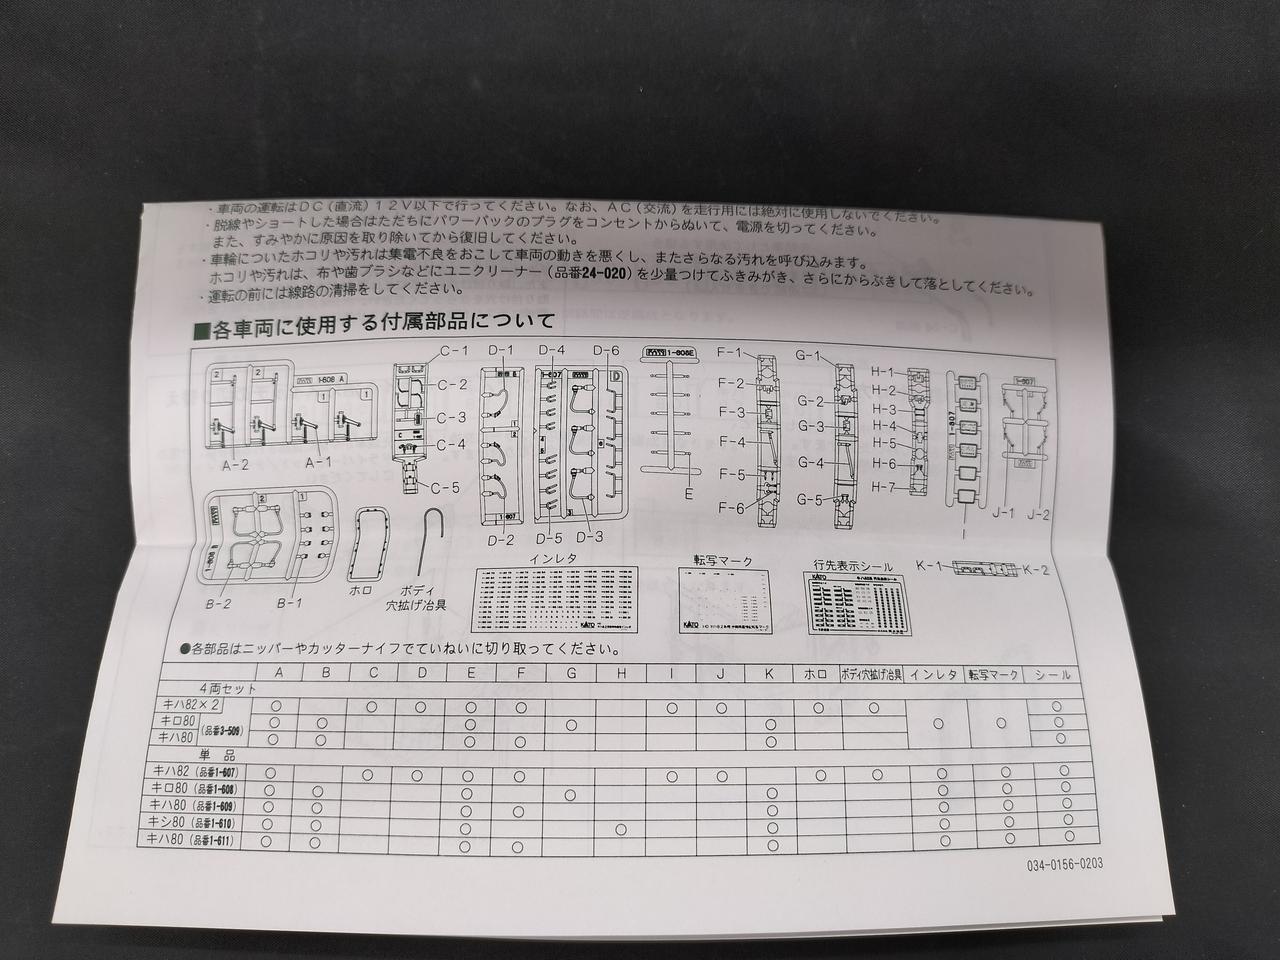 ・車両の運転はDC(直流)12V以下で行ってください。なお、AC(交流)を走行用には絶対に使用しないでください。
・脱線やショートした場合はただちにパワーパックのプラグをコンセントからぬいて、電源を切ってください。
また、すみやかに原因を取り除いてから復旧してください。
・車輪についたホコリや汚れは集電不良をおこして車両の動きを悪くし、またさらなる汚れを呼び込みます。
ホコリや汚れは、布や歯ブラシなどにユニクリーナー(品番24-020)を少量つけてふきみがき、さらにからぶきして落としてください。
・運転の前には線路の清掃をしてください。
■各車両に使用する付属部品について
2 2 1-608 A 1 1
A-2 A-1
C-1
C-2
C-3
C-4
C-5
D-1 D-4 D-6
E 1-607 D
1 2 3 4
1-607
D-2 D-5 D-3
1-608E
E
F-1
F-2
F-3
F-4
F-5
F-6
G-1
G-2
G-3
G-4
G-5
H-1
H-2
H-3
H-4
H-5
H-6
H-7
1-607
1-607
J-1 J-2
1-608 B 2 1
B-2 B-1
ホロ
ボディ
穴拡げ治具
インレタ
KATO
転写マーク
KATO
行先表示シール
KATO
K-1 K-2
●各部品はニッパーやカッターナイフでていねいに切り取ってください。
A B C D E F G H I J K ホロ ボディ穴拡げ治具 インレタ 転写マーク シール
4両セット
キハ82×2 ○ ○ ○ ○ ○ ○ ○ ○ ○ ○
キロ80 (品番3-509) ○ ○ ○ ○ ○ ○ ○ ○
キハ80 ○ ○ ○ ○ ○ ○
単品
キハ82(品番1-607) ○ ○ ○ ○ ○ ○ ○ ○ ○ ○ ○ ○
キロ80(品番1-608) ○ ○ ○ ○ ○ ○ ○ ○
キハ80(品番1-609) ○ ○ ○ ○ ○ ○ ○ ○
キシ80(品番1-610) ○ ○ ○ ○ ○ ○ ○ ○
キハ80(品番1-611) ○ ○ ○ ○ ○ ○ ○ ○
034-0156-0203